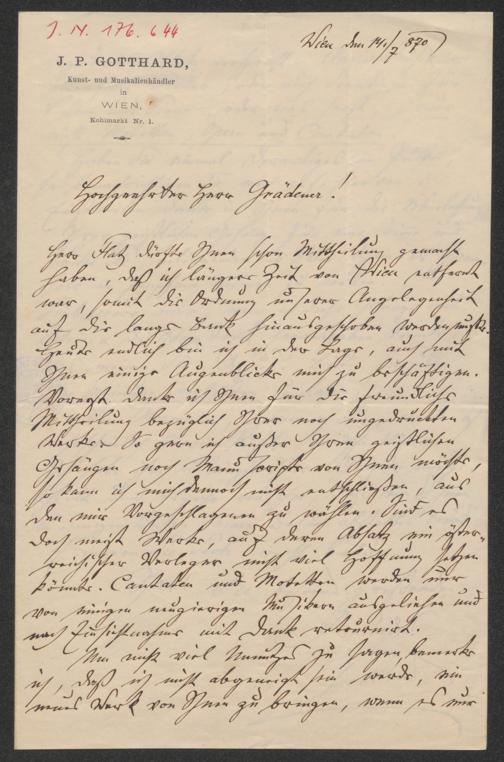 J. N. 176.644
Wien den 14/7 870
J. P. GOTTHARD,
Kunst- und Musikalienhändler
in
WIEN,
Kohlmarkt Nr. 1.
Hochgeehrter Herr Grädener!
Herr Flatz dürfte Ihnen schon Mittheilung gemacht
haben, daß ich längere Zeit von Wien entfernt
war, somit die Ordnung unserer Angelegenheit
auf die lange Bank hinausgeschoben werden mußte.
Heute endlich bin ich in der Lage, auch mit
Ihnen einige Augenblicke mich zu beschäftigen.
Vorerst danke ich Ihnen für die freundliche
Mittheilung bezüglich Ihrer noch ungedruckten
Werke. So gern ich außer Ihren geistlichen
Gesängen noch Manuscripte von Ihnen möchte,
so kann ich mich dennoch nicht entschließen, aus
den mir Vorgeschlagenen zu wählen. Sind es
doch meist Werke, auf deren Absatz ein öster-
reichischer Verleger nicht viel Hoffnung setzen
könnte. Cantaten und Motetten werden nur
von einigen neugierigen Musikern ausgeliehen und
nach Einsichtnahme mit Dank retournirt.
Um nicht viel Unnützes zu sagen, bemerke
ich, daß ich nicht abgeneigt sein werde, ein
neues Werk von Ihnen zu bringen, wenn es nur